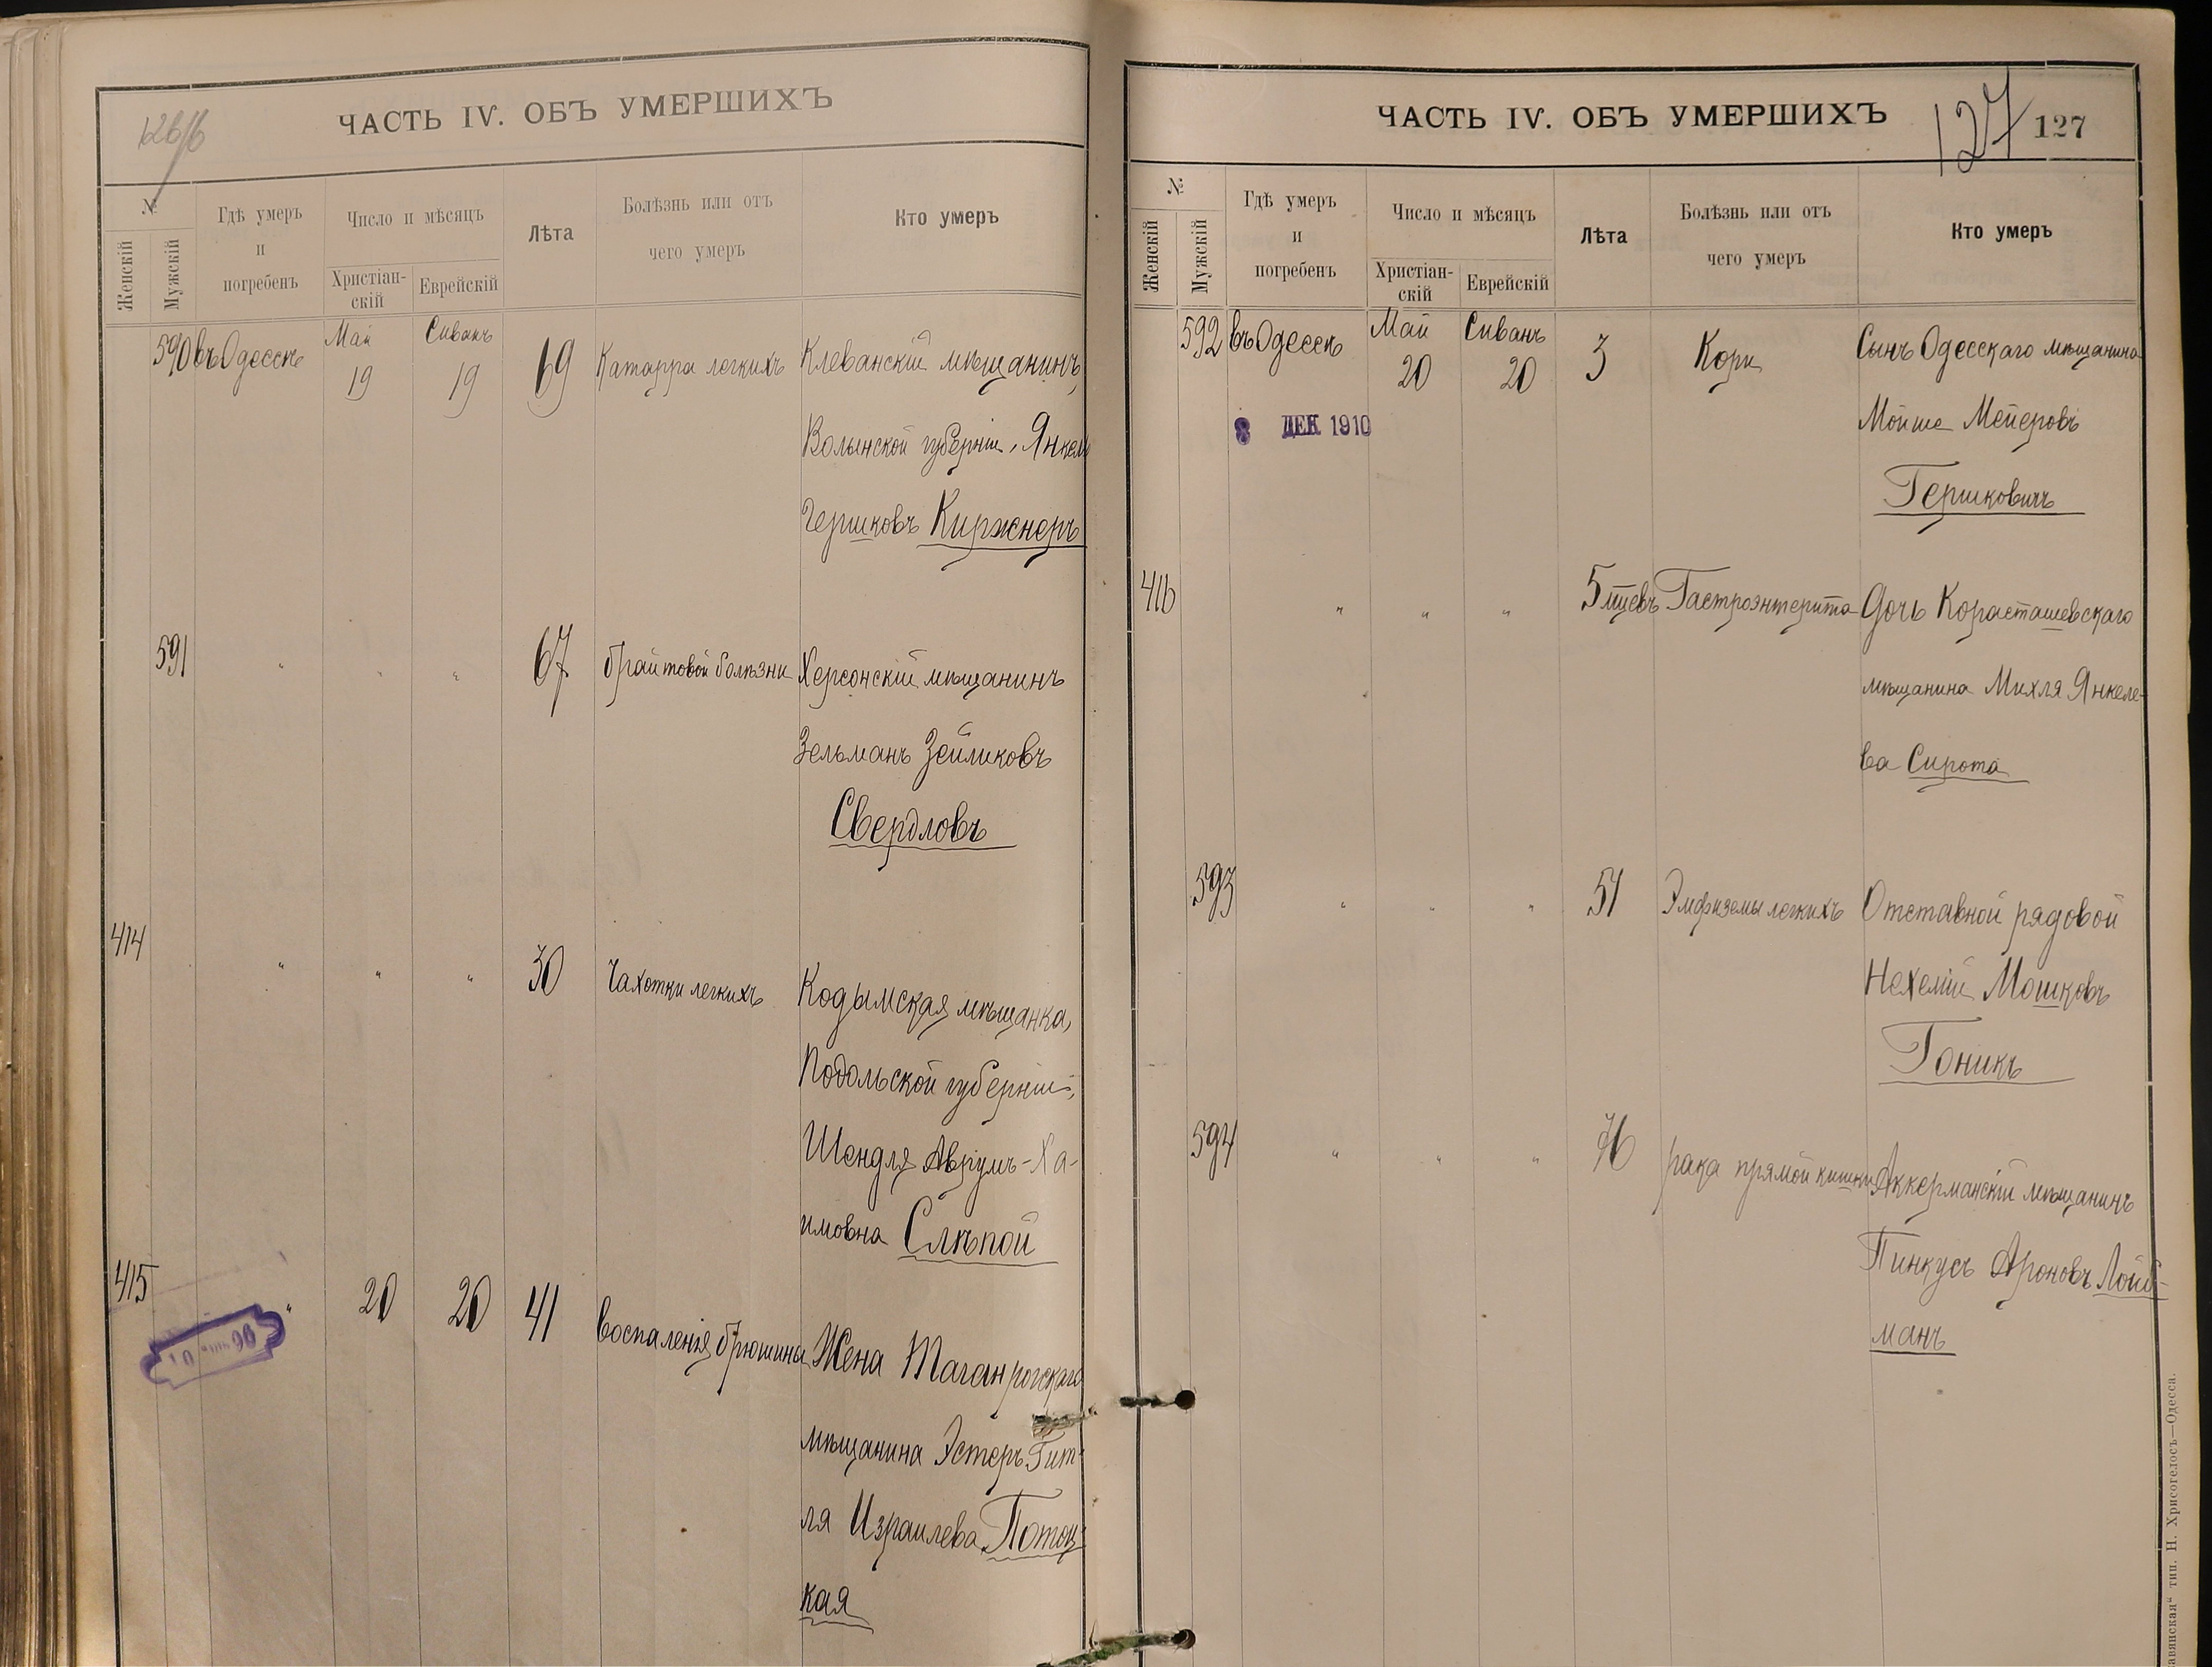 126/б
ЧАСТЬ IV. ОБЪ УМЕРШИХЪ
№
Женскій
Мужскій
Гдѣ умеръ
и
погребенъ
Число и мѣсяцъ
Христіан-
скій
Еврейскій
Лѣта
Болѣзнь или отъ
чего умеръ
Кто умеръ
590 въ Одессѣ Май 19 Сиванъ 19 69 Катарра легкихъ Клеванскій мѣщанинъ,
Волынской губерніи, Янкель
Гершковъ Киржнеръ
591 " " " 67 брайтовой болѣзни Херсонскій мѣщанинъ
Зельманъ Зейликовъ
Свердловъ
414 " " " 30 Чахотки легкихъ Кодымская мѣщанка,
Подольской губерніи,
Шендля Аврумъ-Ха-
имовна Слѣпой
415 " 20 20 41 Воспаленія брюшины Жена Таганрогскаго
мѣщанина Эстеръ Гит-
ля Израилева Потоц-
кая
ЧАСТЬ IV. ОБЪ УМЕРШИХЪ
127
127
№
Женскій
Мужскій
Гдѣ умеръ
и
погребенъ
Число и мѣсяцъ
Христіан-
скій
Еврейскій
Лѣта
Болѣзнь или отъ
чего умеръ
Кто умеръ
592 въ Одессѣ Май 20 Сиванъ 20 3 Кори Сынъ Одесскаго мѣщанина
8 ДЕК 1910
Мойше Мейеровъ
Гершковичъ
416 " " " 5 мцевъ Гастроэнтерита Дочь Корасташевскаго
мѣщанина Михля Янкеле-
ва Сирота
593 " " " 51 Эмфиземы легкихъ Отставной рядовой
Нехемій Мошковъ
Гоникъ
594 " " " 76 рака прямой кишки Аккерманскій мѣщанинъ
Пинкусъ Ароновъ Лойб-
манъ
тип. Н. Хрисогелосъ—Одесса.